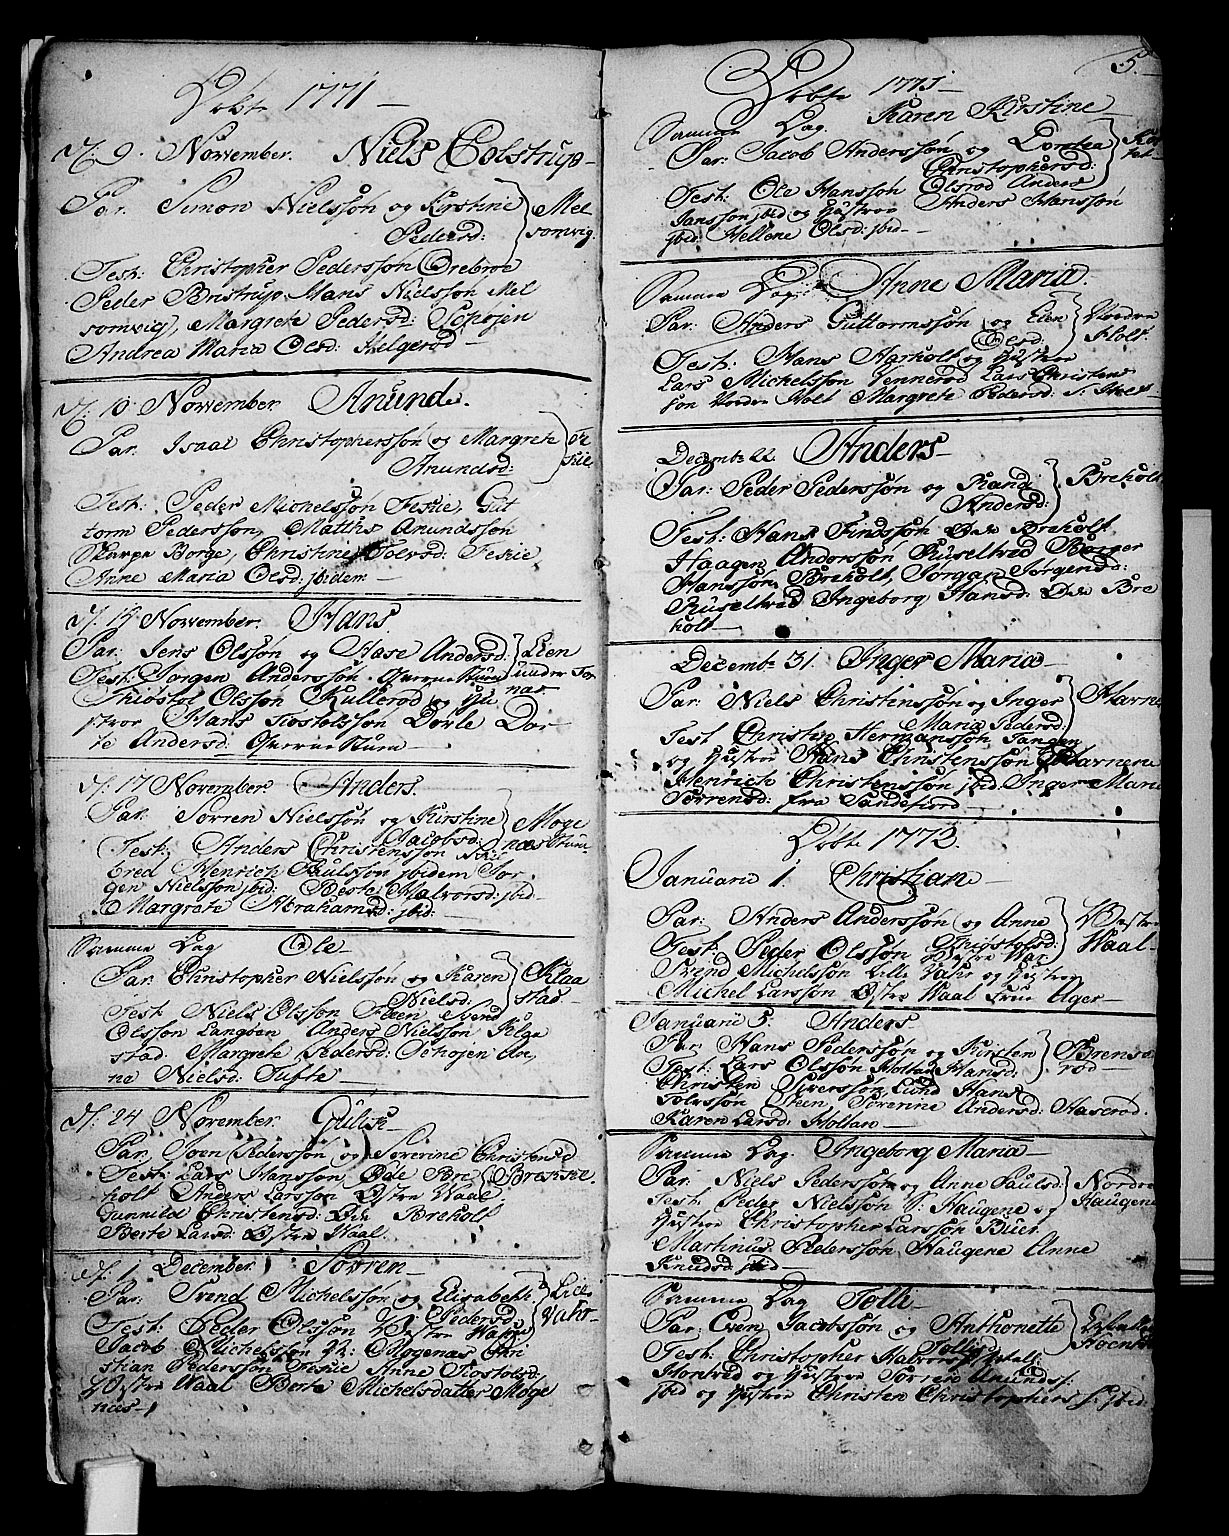 Døbte 1771
D. 9. November. Niels Colstrup
Par. Simon Nielssøn og Kirstine } Mel
Pedersd: somvig.
Test: Christopher Pederssøn Orebroe
Peder Bristrup, Hans Nielssøn Mel
somvig, Margrete Pedersd: Schojen
Andrea Maria Olsd: Helgerød
D: 10 November Anund
Par. Isaac Christopherssøn og Margrete
Anundsd:
Test: Peder Michelssøn Feskie, Gut
torm Pederssøn, Matthis Anundssøn
Skarpe Borge, Christine Tolvsd: Feskie
Anne Maria Olsd: jbidem
November. Hans
Par: Jens Olssøn og Aase Andersd: } Eien
Test: Jørgen Anderssøn unndr For
Thiøstol Olssøn Rullerød og Hu nas
strøe Hans Tiostelssøn Døvle Dor
te Andersd:
D: 17 November Anders.
Par. Sørren Nielssøn og Kirstine } Moge
Jacobsd: næs
Test: Anders Christenssøn
bred Henrich Paulssøn jbidem Jor
gen Nielssøn jbid: Berte Halvorsd: jbid:
Margrete Abrahamsd: jbid:
Samme Dag Ole
Par Christopher Nielssøn og Karen } Klaa
Nielsd: stad
Test Niels Olssøn Fleen Svend
Olssøn Langøen Anders Nielssøn Kelaa
stad. Margrete Pedersd: Schojen An
ne Nielsd: Tufte
D: 24 November. Gulich
Par, Joen Pederssøn og Sørerine Christensd
Test: Lars Hanssøn Øde Bre
holt Anders Larssøn Østre Waal
Gunnild Christensd: Øde Breholt
Berte Larsd: Østre Waal.
D: 1 December Sørren
Par: Svend Michelssøn og Elisabeth } Lille
Pedersd: Vahr
Test: Peder Olssøn Vestre Waal
Jacob Michelssøn Mogenæs Chri
stian Pederssøn Feskie Anne Tiostolsd:
Vestre Waal Berte Michelsdatter Moge
næs
5.
Døbte 1771
Samme Dag. Karen Kirstine
Par: Jacob Anderssøn og Dorthea
Christophersd:
Test: Ole Hanssøn Olsrød Anders
Janssøn jbid og Hustroe Anders Hanssøn
jbid: Hellene Olsd: jbid
Samme Dag: Anne Maria.
Par: Anders Guttormssøn og Elen } Vordre
Olsd: Holt.
Test: Hans Aarholt og Hustroe
Lars Michelssøn Vennerød Lars Christens
søn Holt Margrete Pedersd: S: Holt
Decemb: 22 Anders
Par: Peder Pederssøn og Rand } Breholt
Andersd:
Test: Hans Findssøn Øde Breholt
Haagen Anderssøn Ruseltved Børger
Hanssøn Breholt, Jørgen Jørgensd:
Ruseltved Ingeborg Hansd: Øde Bre
holt
Decemb: 31. Inger Maria
Par: Niels Christenssøn og Inger
Maria Pedersd.
Test Christen Hermanssøn Tangen
og Hustroe Hans Christenssøn Havnene
Henrich Christenssøn jbid. Inger Marie
Sørrensd: fra Sandefiord
Døbte 1772.
Januarii 1. Christian
Par: Anders Anderssøn og Anne } Vestre
Christofsd: Waal
Test: Peder Olssøn Vestre Waal
Svend Michelssøn Lille Vahr og Hustroe
Michel Larssøn Østre Waal Ager
Januarii 5. Anders
Par Hans Pederssøn og Kirsten } Brensø
Hansd: rød
Test: Lars Olssøn Holtan
Christen Siverssøn Lund Hans
Tolvssøn Steen Sørenne Andersd: Haserød.
Karen Larsd: Holtan
Samme Dag. Ingeborg Maria
Par: Niels Pederssøn og Anne Paulsd: } Nordre
Test: Peder Nielssøn S: Haugene og Haugene
Hustroe Christopher Larssøn Buer
Martinus Pederssøn Haugene Anne
Knudsd: jbid
Samme Dag Tolli
Par: Even Jacobssøn og Anthonette
Tollis
Test: Christopher Halvors:
og Hustroe Sørren Amunds:
jbid og Hustroe Christen Christophers S: jbid: